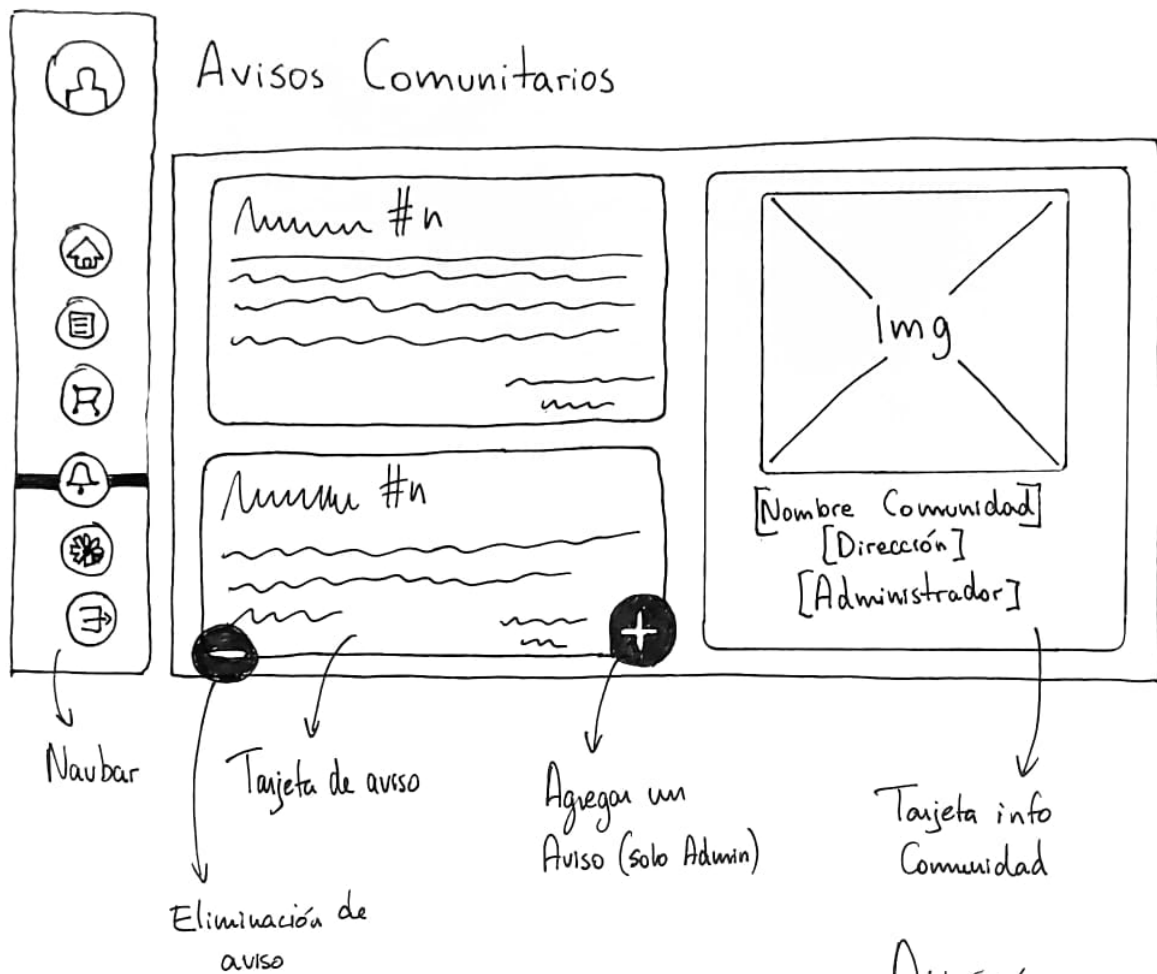 Avisos Comunitarios
#n
#n
Img
[Nombre Comunidad]
[Dirección]
[Administrador]
Navbar
Tarjeta de aviso
Agregar un
Aviso (solo Admin)
Tarjeta info
Comunidad
Eliminación de
aviso